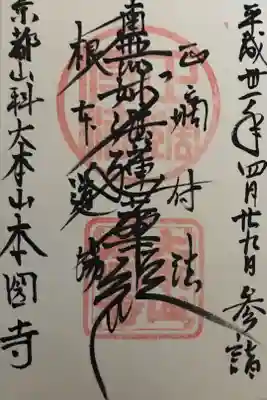 平成丗一年四月廿九日参詣
正嫡付法
南無妙法蓮華経
根本道場
京都山科大本山本圀寺